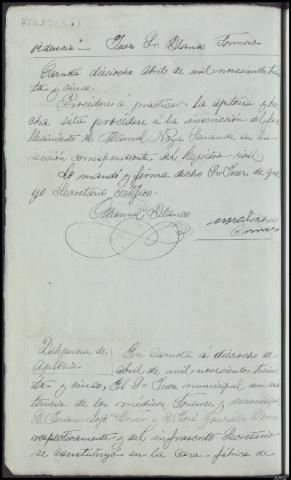 videncia = Juez Sr. Blanco Formoso
Carnota dieciocho Abril de mil novecientos trein-
ta y cinco.
Procédase á practicar la autopsia y he-
cha ésta procédase á la inscrición del fa-
llecimiento de Manuel Noya Lavandé en la
sección correspondiente del Registro civil
Lo mandó y firma dicho Sr. Juez de que
yo Secretario certifico.
Manuel Blanco
Diligencia de
Autopsia
En Carnota á dieciocho de
Abril de mil novecientos trein-
ta y cinco, El Sr. Juez municipal con asis-
tencia de los médicos, forense y
D. José González
respectivamente y del infrascrito Secretario
se constituyó en la casa-fábrica de